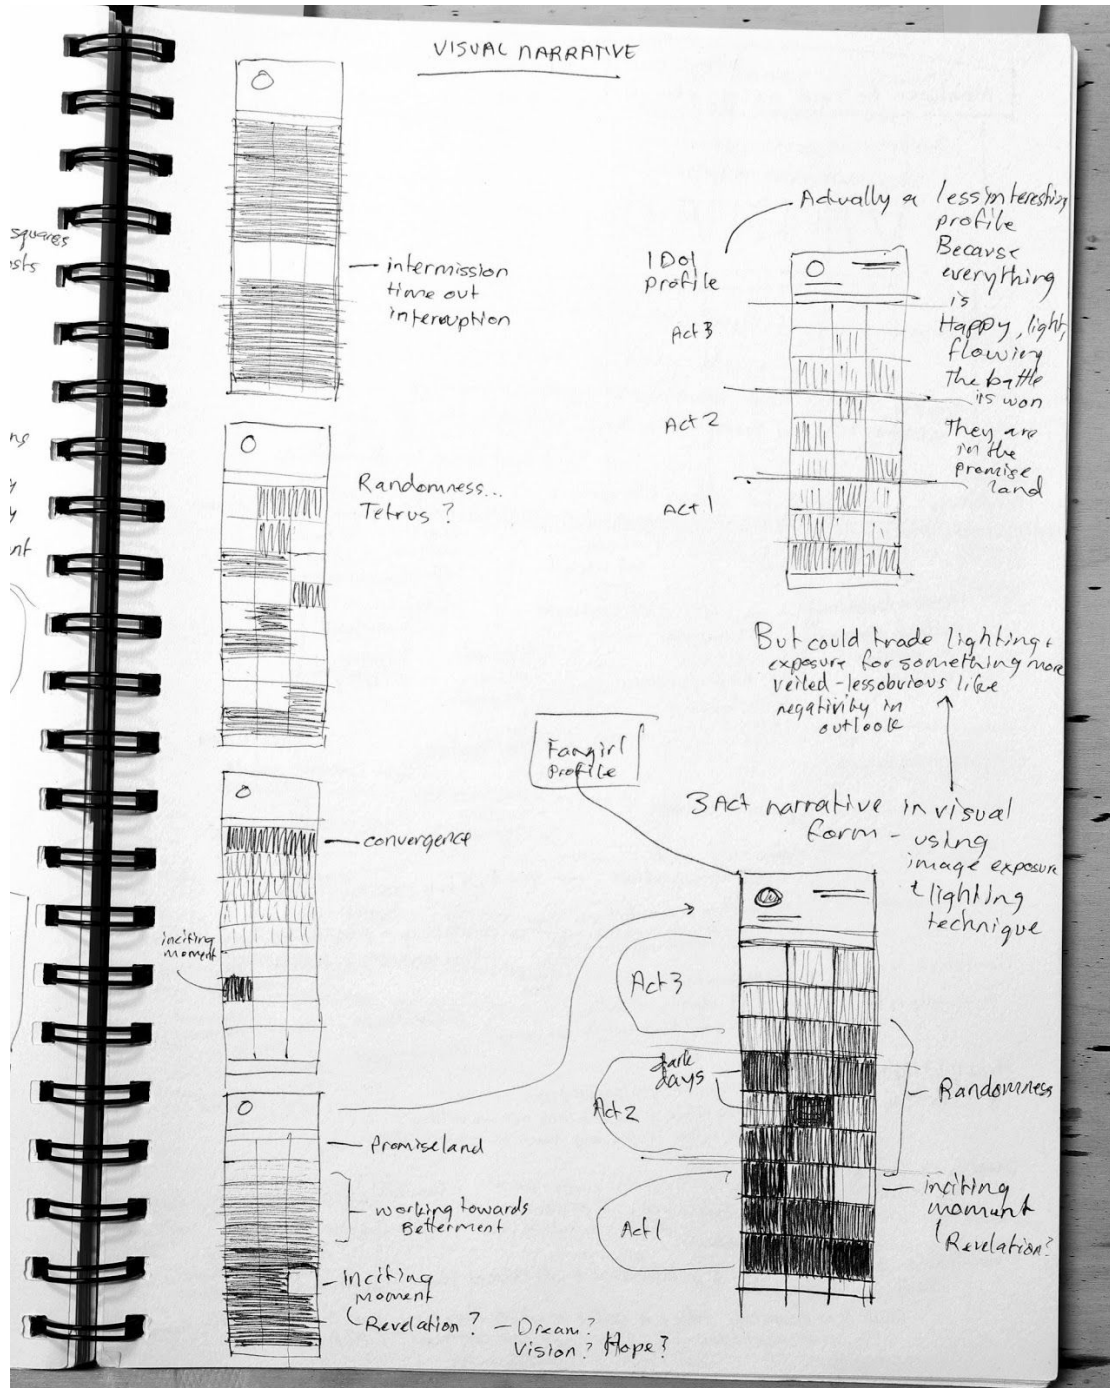 VISUAL NARRATIVE
squares
intermission
time out
interouption
Randomness...
Tetrus?
convergence
inciting
moment
Promiseland
working towards
Betterment
inciting
moment
Revelation? - Dream?
Vision? Hope?
Actually a less interesting
profile
Because
everything
is
Happy, light,
flowing
The battle
is won
They are
in the
promise
land
IDol
profile
Act 3
Act 2
Act 1
But could trade lighting +
exposure for something more
veiled - less obvious like
negativity in
outlook
Fangirl
Profile
3 Act narrative in visual
form - using
image exposure
+ lighting
technique
Act 3
dark
days
Act 2
Act 1
Randomness
inciting
moment
Revelation?